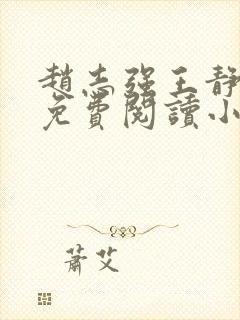 趙志強王靜
免費閱讀小
蕭艾